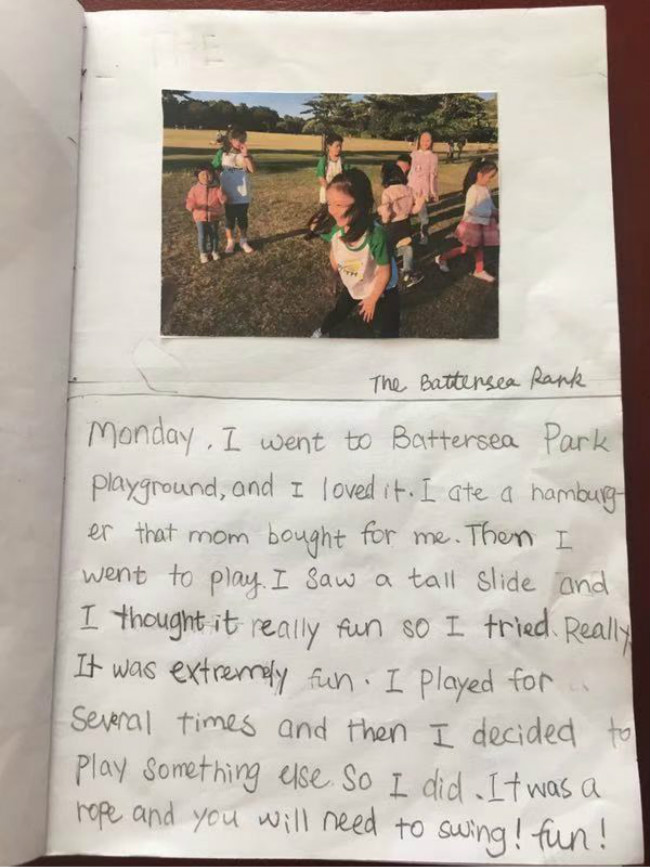 THE
The Battersea Rark
Monday. I went to Battersea Park
playground, and I loved it. I ate a hamburg-
er that mom bought for me. Then I
went to play. I saw a tall slide and
I thought it really fun so I tried. Really
It was extremely fun. I played for
several times and then I decided to
play something else. So I did. It was a
rope and you will need to swing! fun!